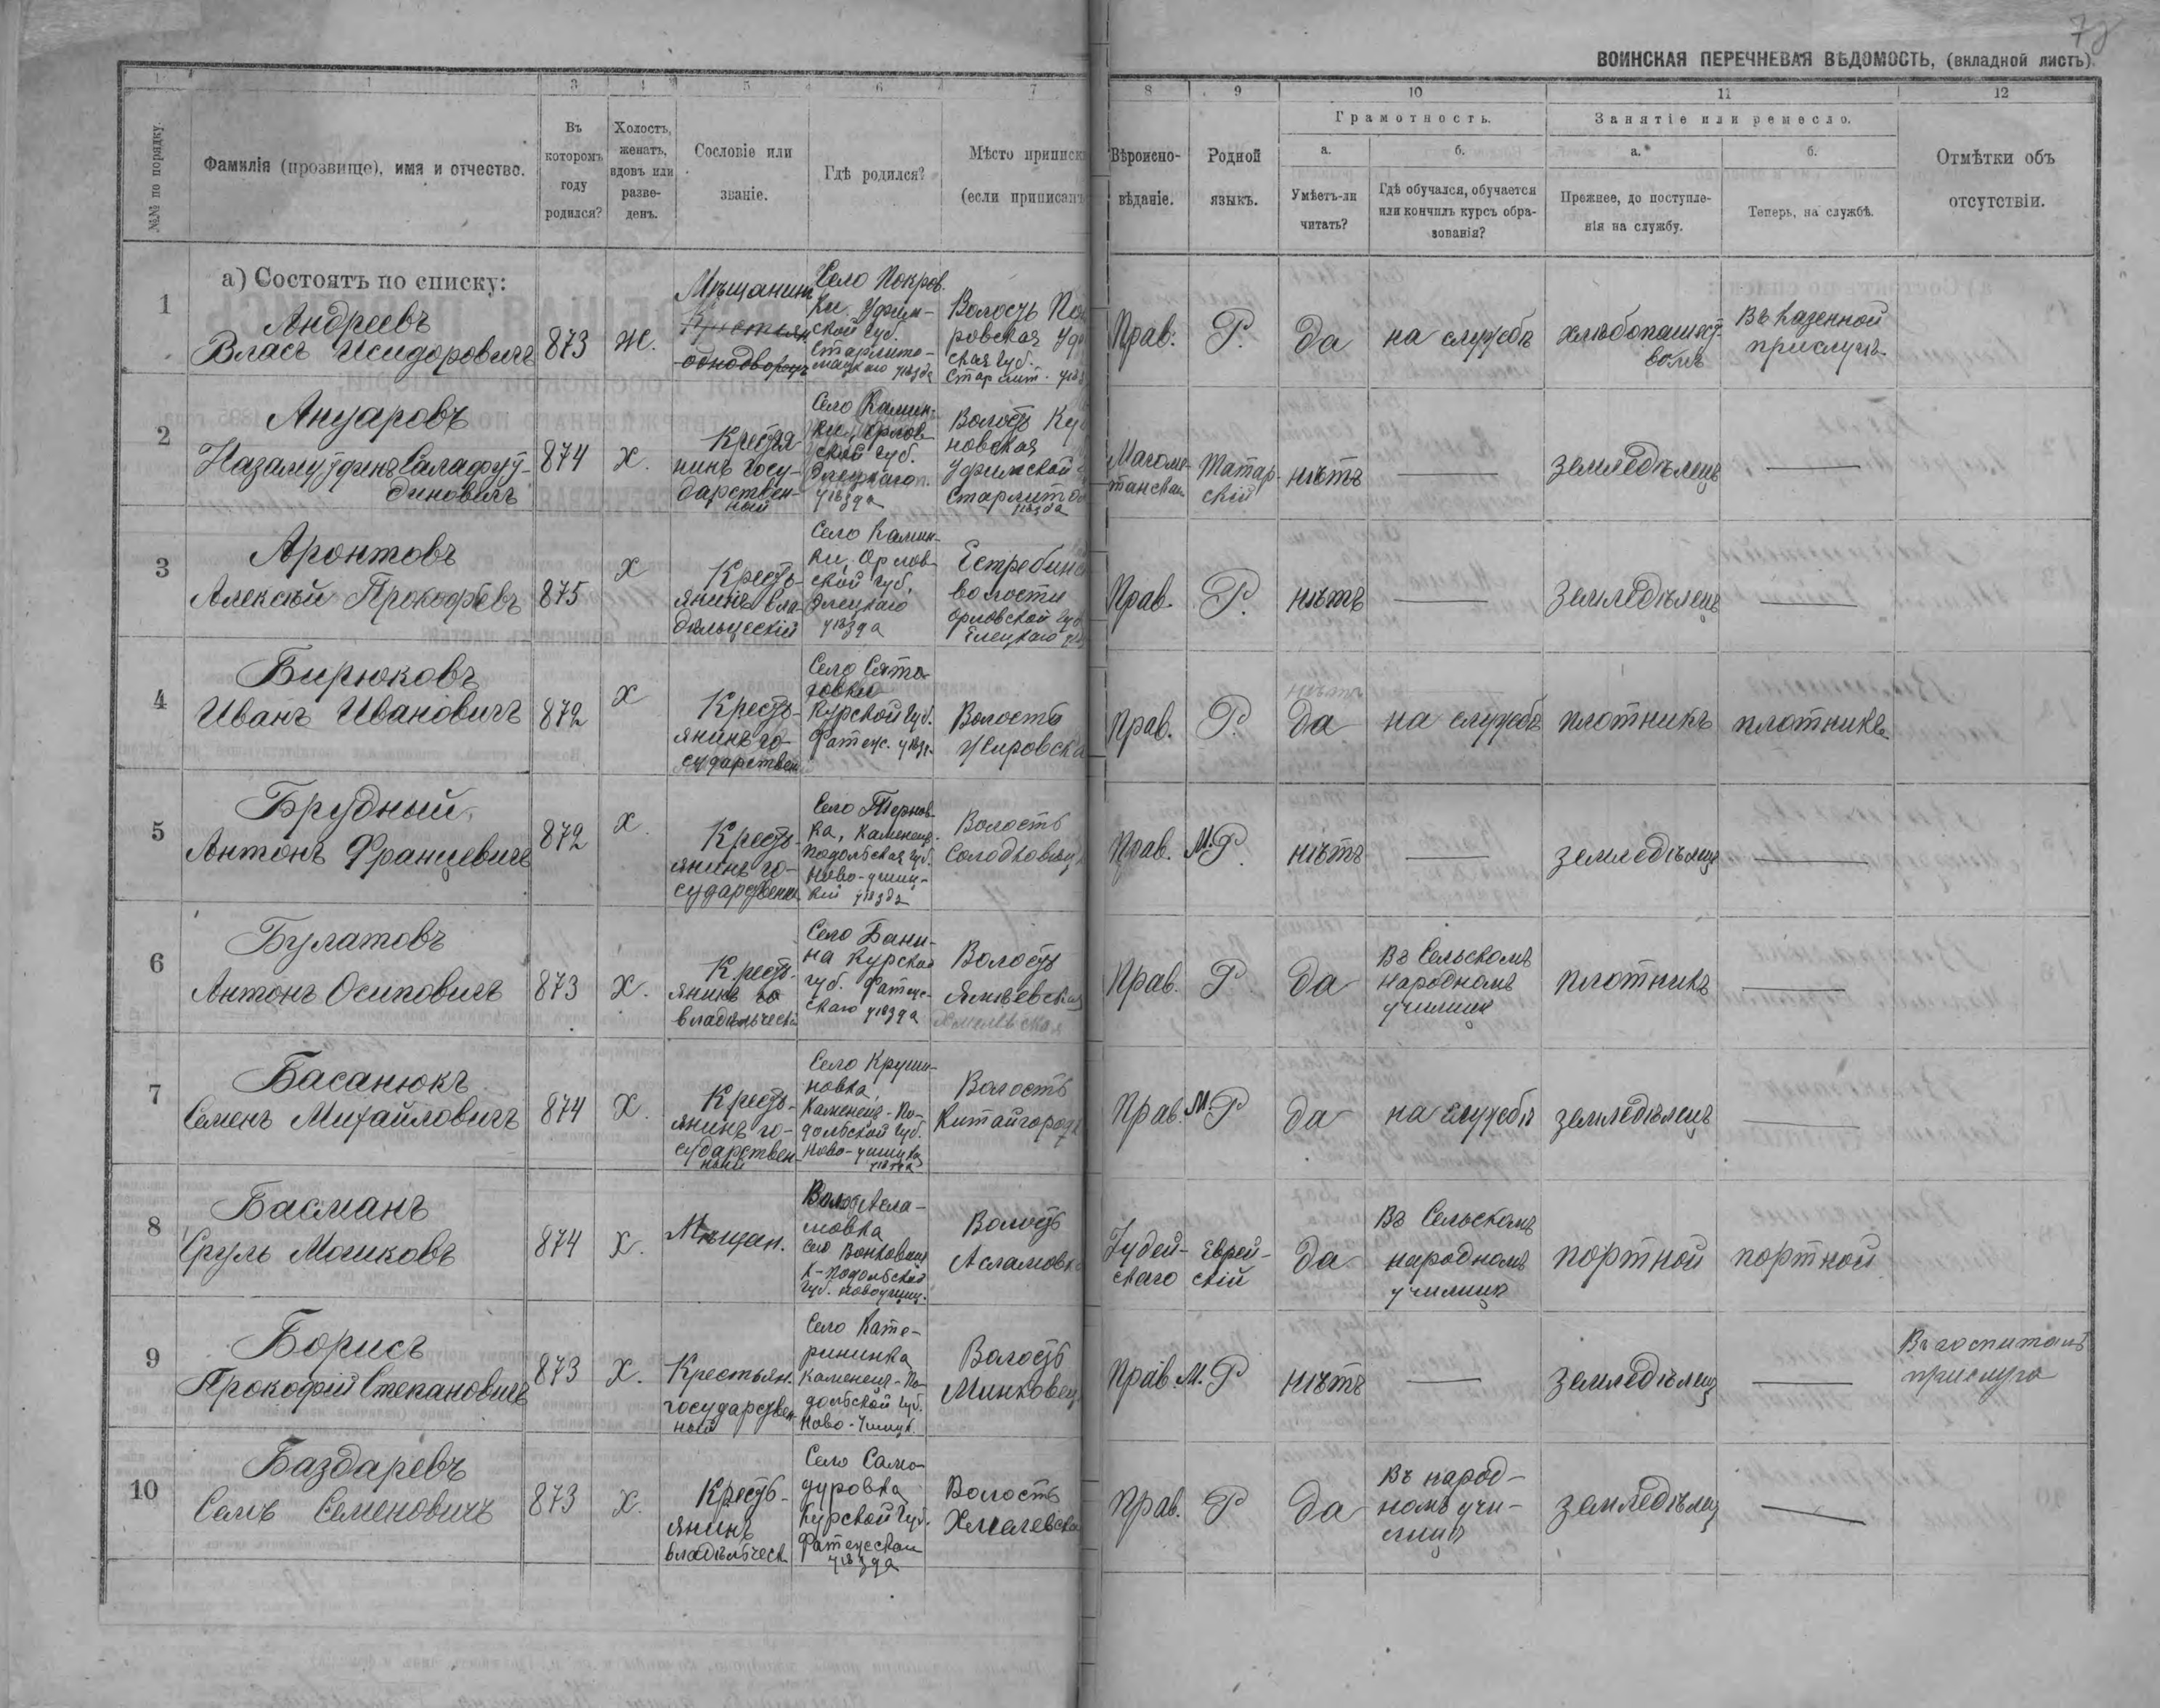 ВОИНСКАЯ ПЕРЕЧНЕВАЯ ВѢДОМОСТЬ, (вкладной листъ).
№№ по порядку.
Фамилія (прозвище), имя и отчество.
Въ которомъ году родился?
Холостъ, женатъ, вдовъ или разведенъ.
Сословіе или званіе.
Гдѣ родился?
Мѣсто приписк
(если приписанъ
Вѣроисповѣданіе.
Родной языкъ.
Грамотность.
а. Умѣетъ-ли читать?
б. Гдѣ обучался, обучается или кончилъ курсъ образованія?
Занятіе или ремесло.
а. Прежнее, до поступленія на службу.
б. Теперь, на службѣ.
Отмѣтки объ отсутствіи.
3 4 5 6 7 8 9 10 11 12
а) Состоятъ по списку:
1
Андреевъ
Власъ Исидоровичъ
873
Ж.
Мѣщанинъ
Село Покров
ки Уфим-
ской губ.
Волость По
ровская
Прав.
Р.
Да
на службѣ
Въ казенной
прислугѣ
2
Ануаровъ
874
Х.
Крестья
нинъ Госу-
дарствен-
ный
Село Камин-
ки, Орлов
ской губ.
уѣзда
Волость
новская
Уфимской
Магоме-
танская
Татар-
скій
нѣтъ
—
земледѣлецъ
—
3
Аронтовъ
Алексѣй Прокофьевъ
875
Х
Кресть-
янинъ вла-
дѣльческій
Село Камин-
ки, Орлов-
ской губ,
Элецкаго
уѣзда
волости
Орловской губ
Елецкаго
Прав.
Р.
нѣтъ
—
Земледѣлецъ
—
4
Бирюковъ
Иванъ Ивановичъ
872
Х
Кресть-
янинъ го-
сударствен
Село
Курской губ.
Фатеж. уѣзд.
Волость
Прав.
Р.
Да
на службѣ
плотникъ
плотникъ
5
Брудный
Антонъ Францевичъ
872
Х.
Кресть-
янинъ го-
сударствен
Село Тернов-
ка, Каменец-
Подольская губ.
Ново-ушиц-
кій уѣзда
Волость
Прав.
М.Р.
нѣтъ
—
земледѣлецъ
—
6
Булатовъ
Антонъ Осиповичъ
873
Х.
Кресть-
янинъ го
владѣльческ
Село Бани-
на Курская
губ. Фатеж-
скаго уѣзда
Волость
Прав.
Р
Да
Въ Сельскомъ
народномъ
училищѣ
плотникъ
—
7
Басанюкъ
Семенъ Михайловичъ
874
Х.
Кресть-
янинъ го-
сударствен-
ный
Село Круши-
новка,
Каменец-По-
дольской губ.
Ново-ушицк
уѣзда
Волость
Китайгород
Прав.
М.Р
Да
на службѣ
земледѣлецъ
—
8
Басманъ
Сруль Мошковъ
874
Х.
Мѣщан.
К-Подольской
губ. Новоушиц.
Волость
Асламовк
Іудей-
скаго
Еврей-
скій
Да
Въ Сельскомъ
народномъ
училищѣ
портной
портной
9
Борисъ
Прокофій Степановичъ
873
Х.
Крестьян.
государствен-
ный
Село Кате-
рининка
Каменец-По-
дольской губ.
Ново-Ушицк.
Волость
Минковец
Прав.
М.Р
нѣтъ
—
земледѣлец
—
Въ госпиталѣ
прислуга
10
Баздаревъ
Семеновичъ
873
Х.
Кресть-
янинъ
владѣльческ
Село Само-
дуровка
Курской губ.
Фатежскаго
уѣзда
Волость
Хмелевска
Прав.
Р
Да
Въ народ-
номъ учи-
лищѣ
земледѣлец
—